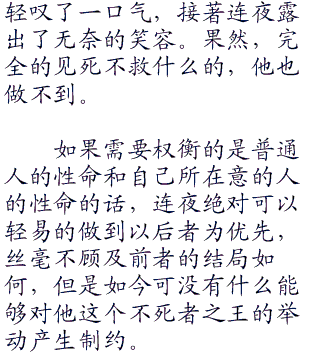 轻叹了一口气，接著连夜露
出了无奈的笑容。果然，完
全的见死不救什么的，他也
做不到。
如果需要权衡的是普通
人的性命和自己所在意的人
的性命的话，连夜绝对可以
轻易的做到以后者为优先，
丝毫不顾及前者的结局如
何，但是如今可没有什么能
够对他这个不死者之王的举
动产生制约。